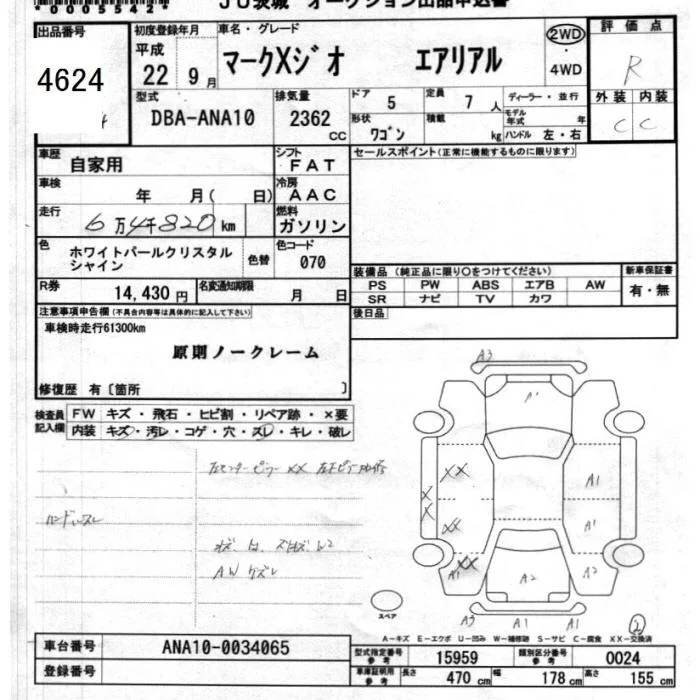 *0005542*
JU茨城 オークション出品申込書
出品番号 初度登録年月 車名・グレード 評価点
4624 平成 22 9月 マークXジオ エアリアル 2WD・4WD R
型式 排気量 ドア 5 定員 7人 ディーラー・並行 外装 内装
DBA-ANA10 2362cc 形状 ワゴン 積載 kg モデル年式 年 ハンドル 左・右 C C
車歴 自家用 シフト FAT セールスポイント(正常に機能するものに限ります)
車検 年 月( 日) 冷房 AAC
走行 6万4千820km 燃料 ガソリン
色 ホワイトパールクリスタルシャイン 色替 色コード 070
装備品(純正品に限り○をつけてください) 新車保証書
PS PW ABS エアB AW 有・無
SR ナビ TV カワ
R券 14,430円 名変通知期限 月 日
後日品
注意事項申告欄(不具合内容等は具体的に記入して下さい)
車検時走行61300km
原則ノークレーム
修復歴 有〔箇所 〕
検査員記入欄 FW キズ・飛石・ヒビ割・リペア跡・×要
内装 キズ・汚レ・コゲ・穴・スレ・キレ・破レ
ハンドルスレ
AW ケズレ
A3
A1
XX A1
X
X XX A1
XX
A1 A2 A2
スペア A3 A1 A1 2
A-キズ E-エクボ U-凹み W-補修跡 S-サビ C-腐食 XX-交換済
車台番号 ANA10-0034065
登録番号
型式指定番号 参考 15959 類別区分番号 参考 0024
車庫証明用 参考 長さ 470cm 幅 178cm 高さ 155cm